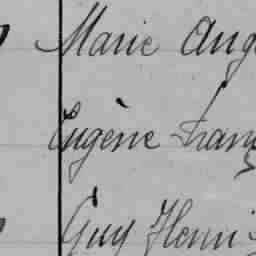 Marie Aug
Eugène Franç
Guy Henri